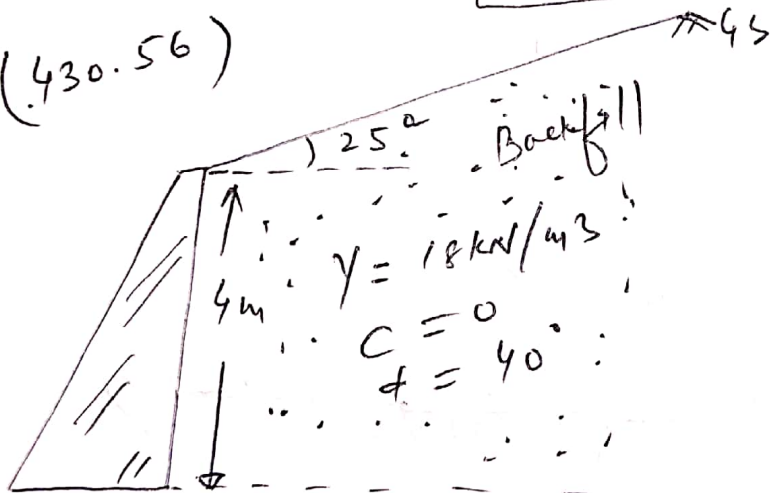 (430.56)
GS
25°
Backfill
γ = 18 kN/m3
4m
C = 0
ɸ = 40°